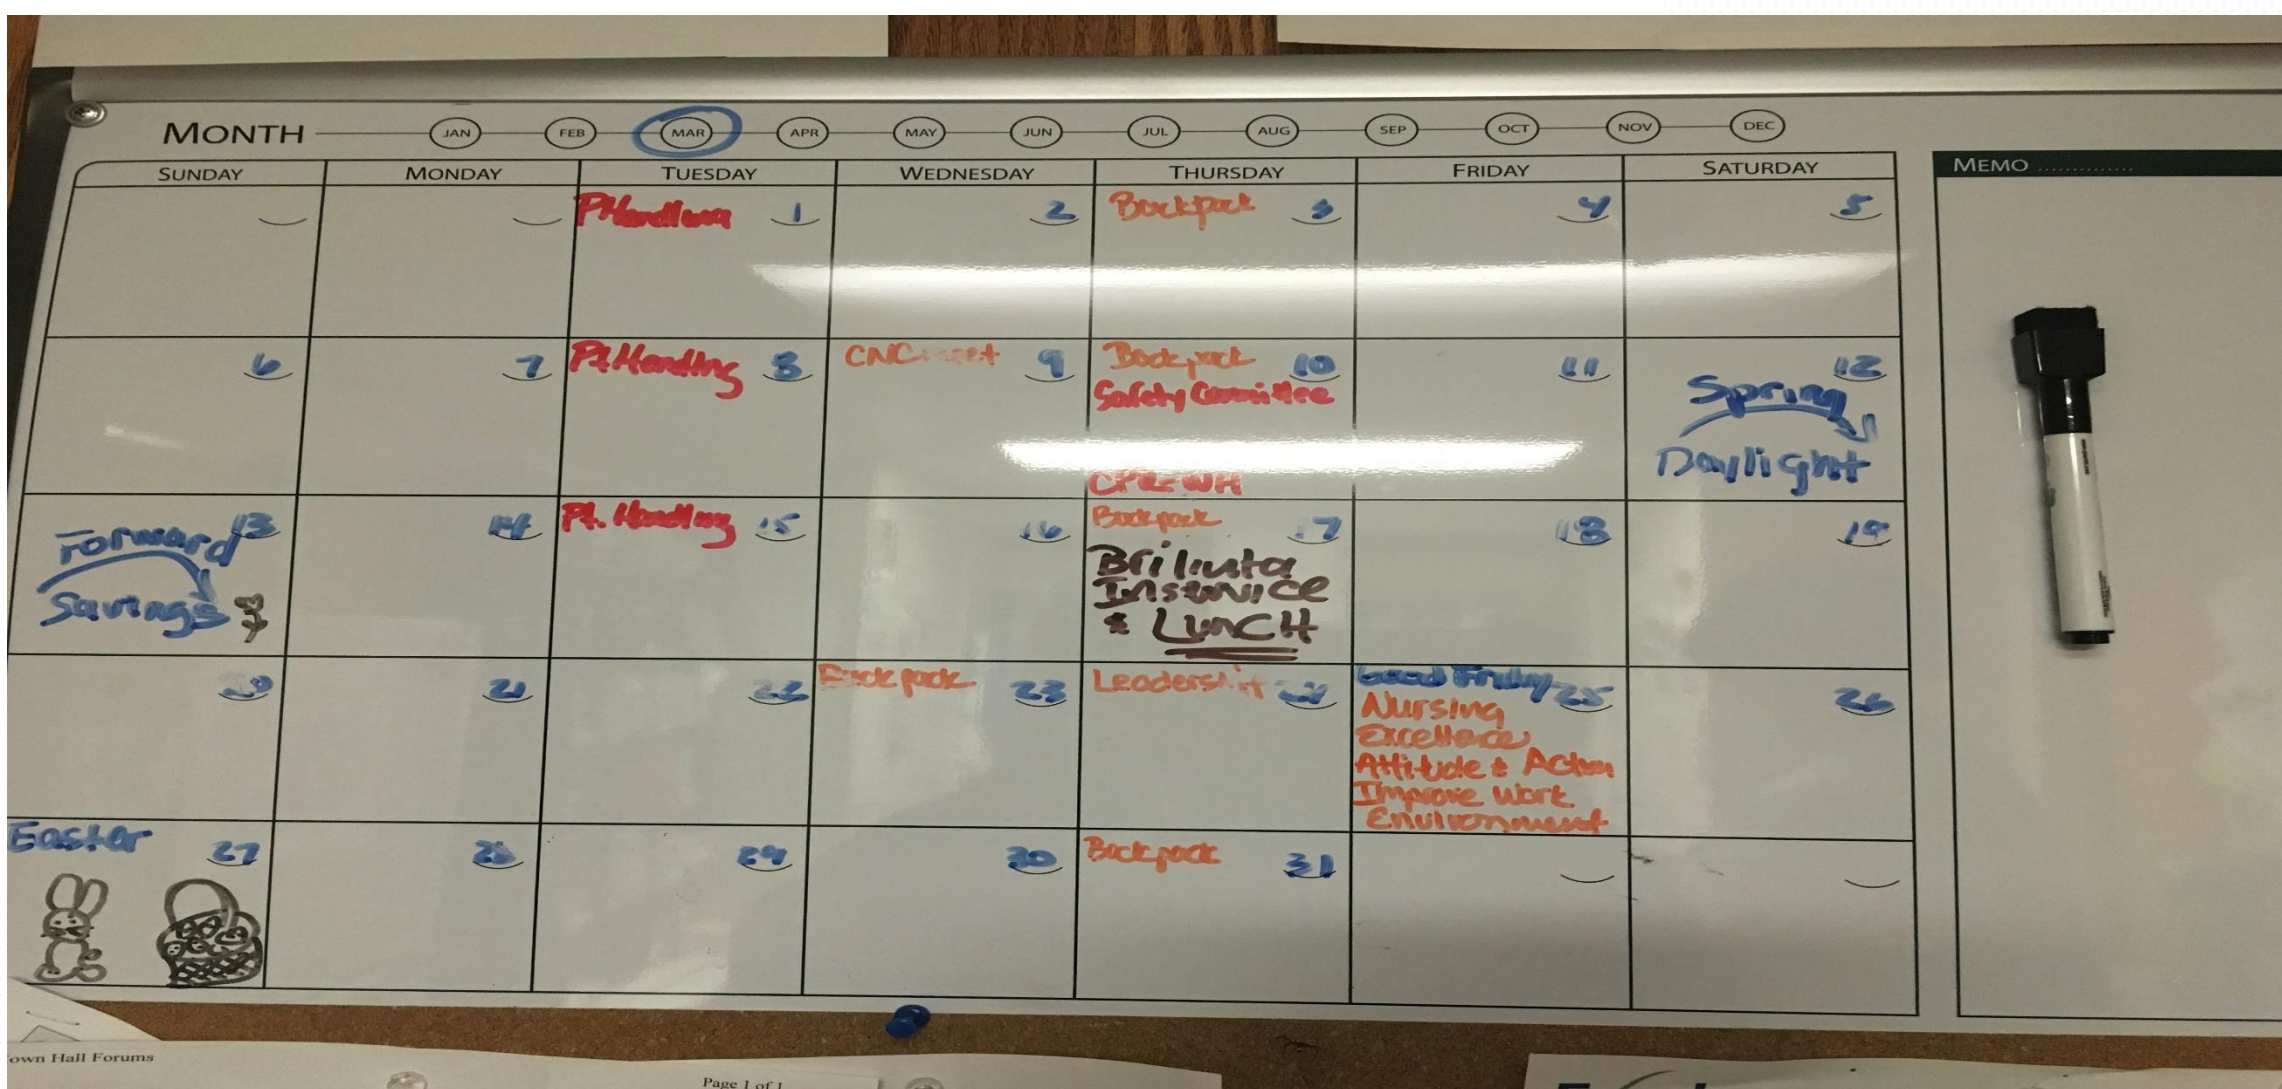 MONTH JAN FEB MAR APR MAY JUN JUL AUG SEP OCT NOV DEC
SUNDAY MONDAY TUESDAY WEDNESDAY THURSDAY FRIDAY SATURDAY
MEMO ..............
1 2 Backpack 3 4 5
6 7 Pt Handling 8 CNC meet 9 Backpack 10 11 12
Safety Committee
Spring
Daylight
CPR-WH
13 14 Pt. Handling 15 16 Backpack 17 18 19
Forward
Savings
Brilinta
Inservice
& LUNCH
20 21 22 Backpack 23 Leadership 24 Good Friday 25 26
Nursing
Excellence
Attitude & Action
Improve Work
Environment
Easter 27 28 29 30 Backpack 31
own Hall Forums
Page 1 of 1